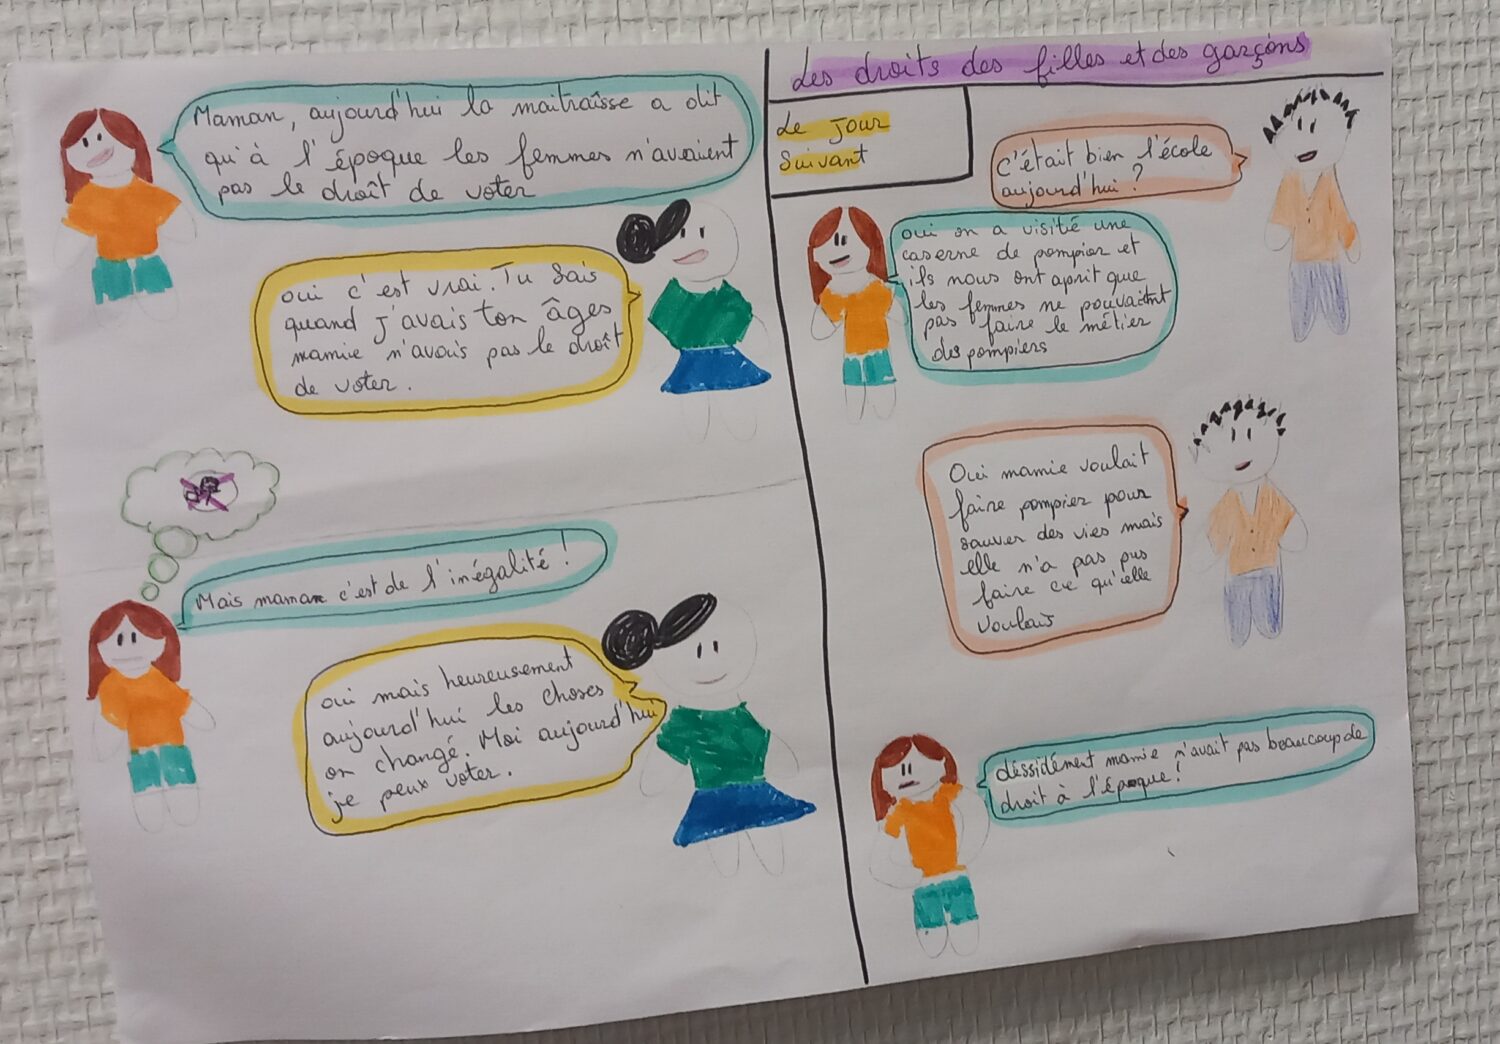 Maman, aujourd'hui la maitraîsse a dit
qu'à l'époque les femmes n'avaient
pas le droît de voter
oui c'est vrai. Tu sais
quand j'avais ton âges
mamie n'avais pas le droît
de voter.
Mais maman c'est de l'inégalité !
oui mais heureusement
aujourd'hui les choses
on changé. Moi aujourd'hui
je peux voter.
Les droits des filles et des garçons
Le jour
suivant
C'était bien l'école
aujourd'hui ?
oui on a visitié une
caserne de pompier et
ils nous ont aprit que
les femmes ne pouvaient
pas faire le métier
des pompiers
Oui mamie voulait
faire pompier pour
sauver des vies mais
elle n'a pas pus
faire ce qu'elle
voulais
déssidément mamie n'avait pas beaucoup de
droit à l'époque !